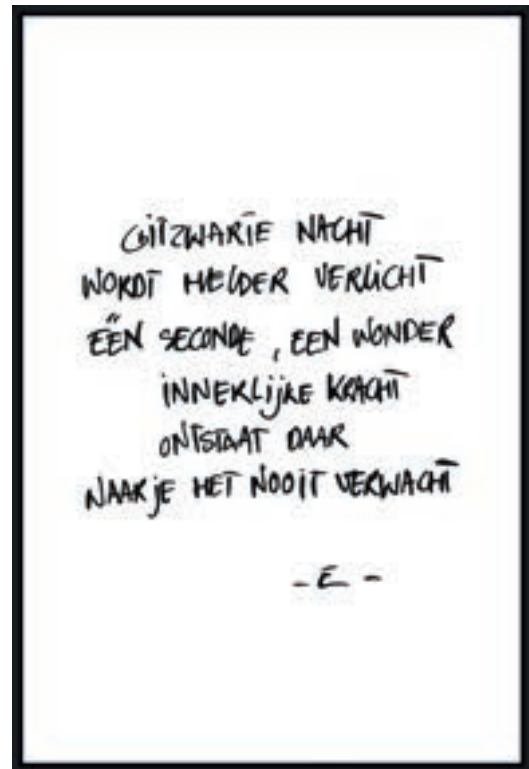 GITZWARTE NACHT
WORDT HELDER VERLICHT
ÉÉN SECONDE, EEN WONDER
INNERLIJKE KRACHT
ONTSTAAT DAAR
WAAR JE HET NOOIT VERWACHT
- E -